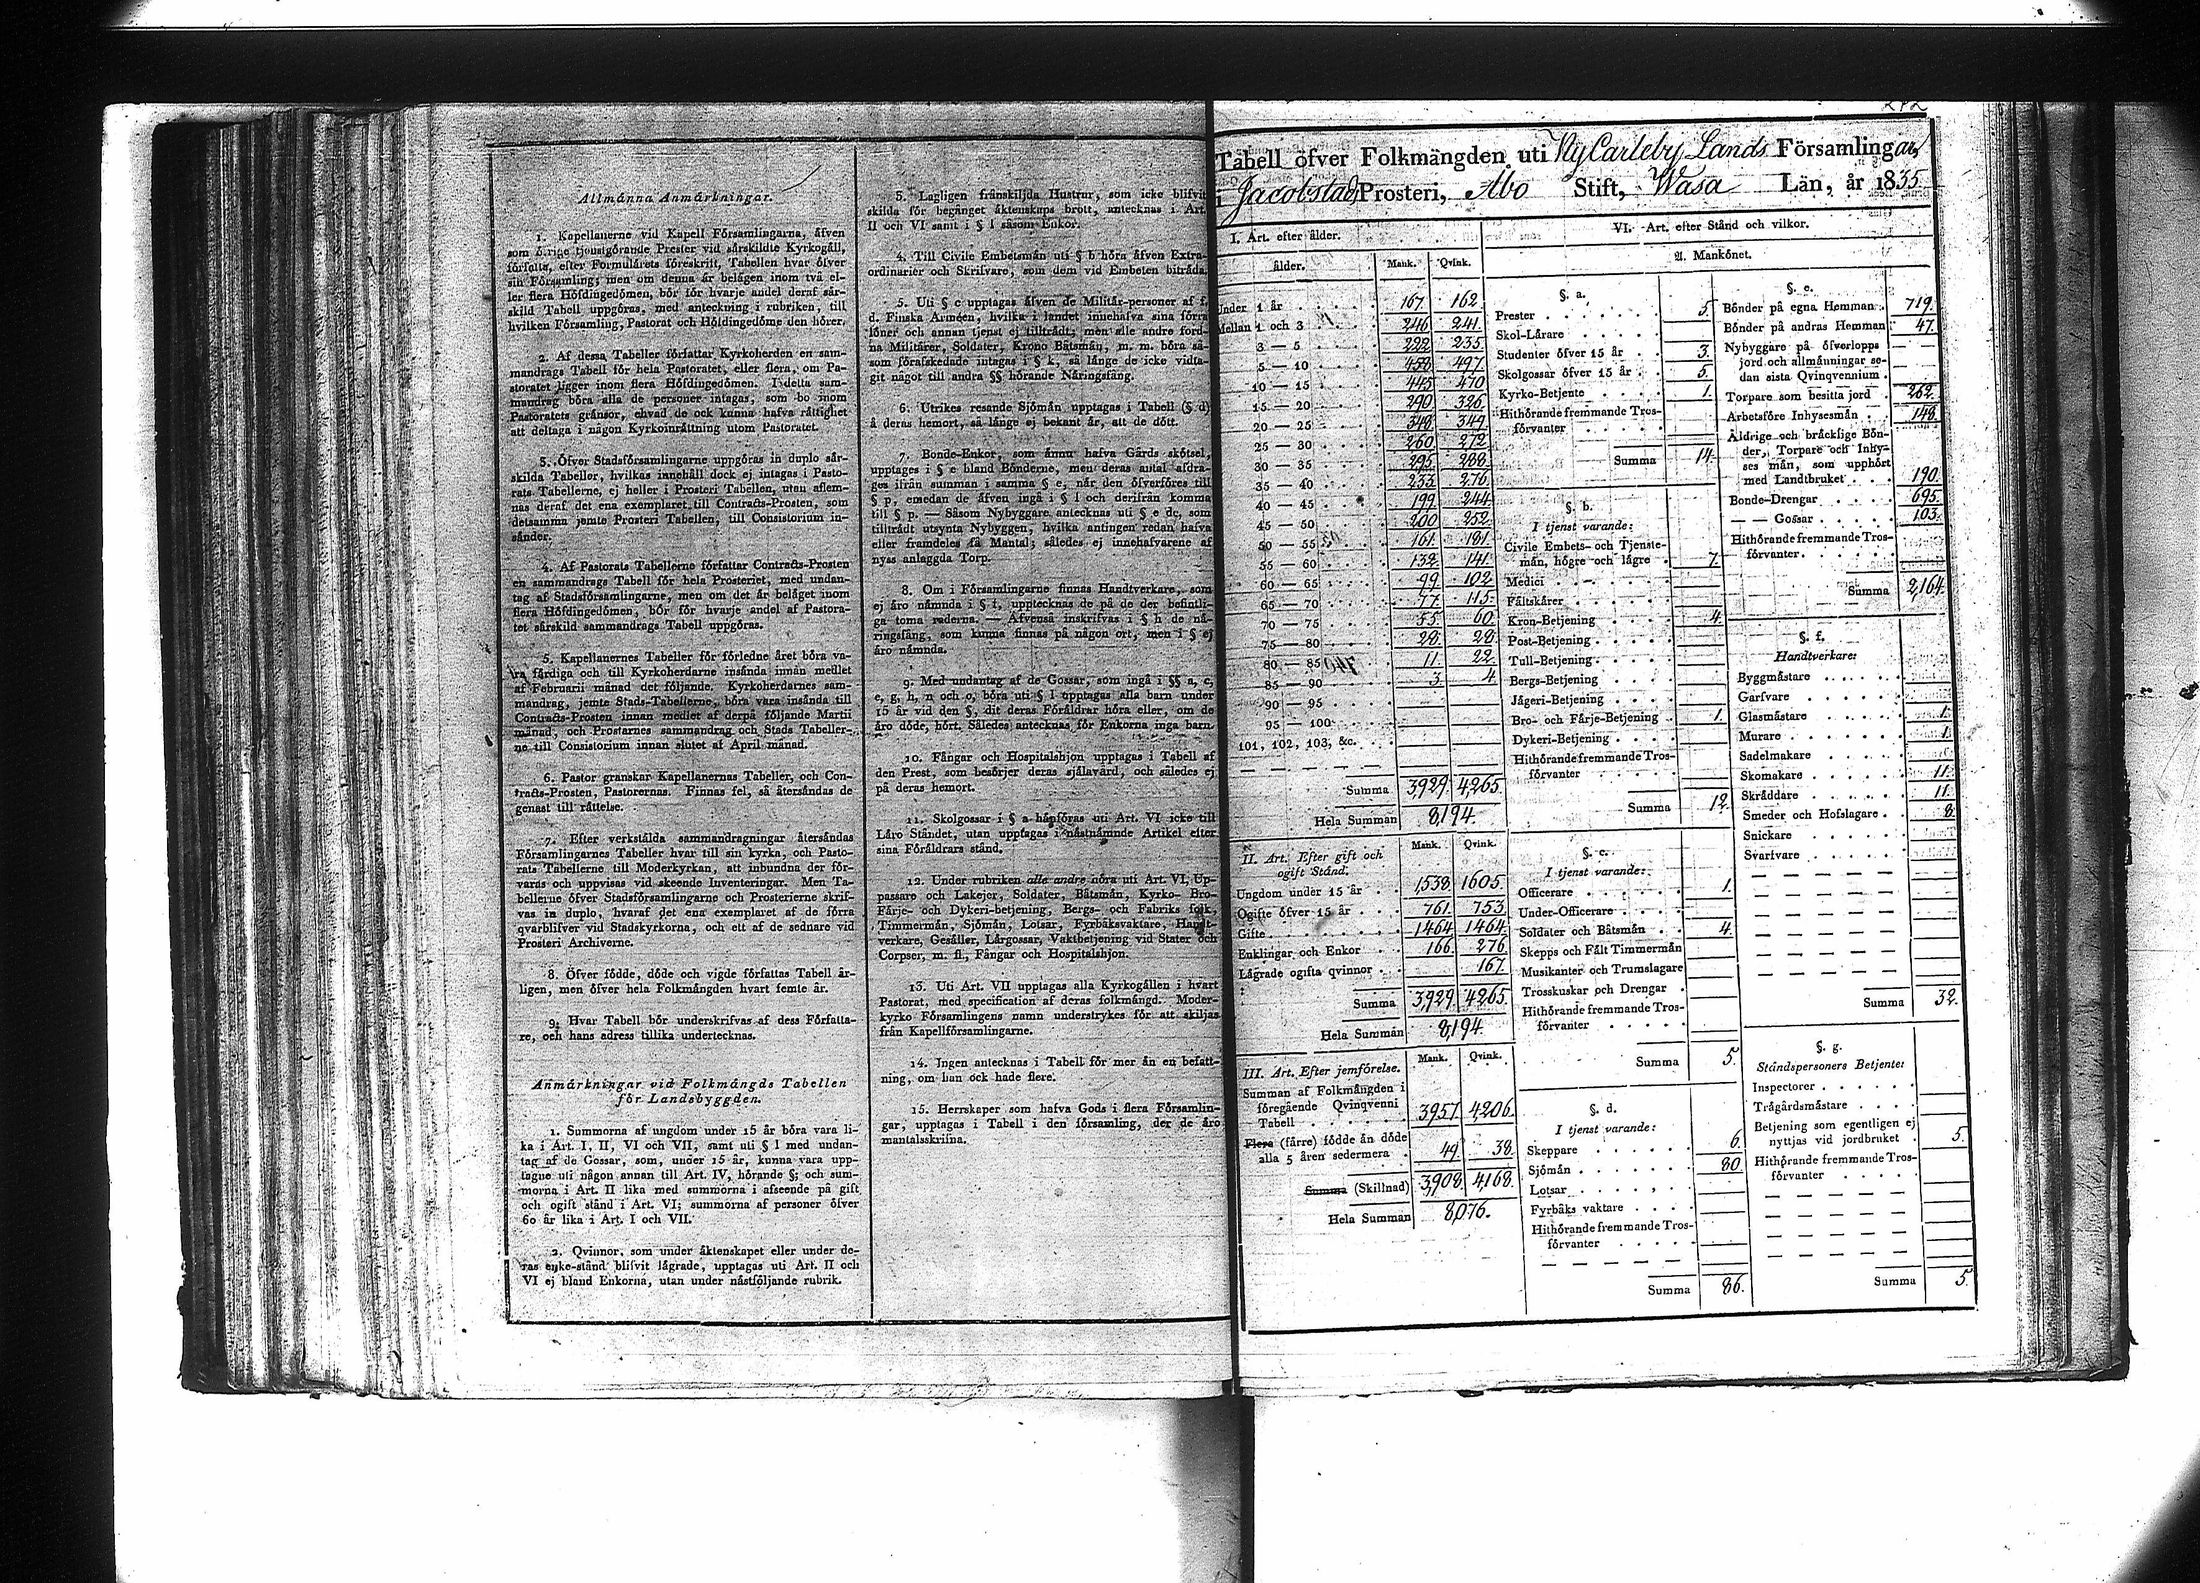 Allmänna Anmärkningar.
1. Kapellanerne vid Kapell Församlingarna, äfven
som öfrige tjenstgörande Prester vid särskildte Kyrkogäll,
författa, efter Formulärets föreskrift, Tabellen hvar öfver
sin Församling; men om denna är belägen inom två el-
ler flera Höfdingedömen, bör för hvarje andel deraf sär-
skild Tabell uppgöras, med anteckning i rubriken, till
hvilken Församling, Pastorat och Höfdingedöme den hörer.
2. Af dessa Tabeller författar Kyrkoherden en sam-
mandrags Tabell för hela Pastoratet, eller flera, om Pa-
storatet ligger inom flera Höfdingedömen. I detta sam-
mandrag böra alla de personer intagas, som bo inom
Pastoratets gränsor, ehvad de ock kunna hafva rättighet
att deltaga i någon Kyrkoinrättning utom Pastoratet.
3. Öfver Stadsförsamlingarne uppgöras in duplo sär-
skilda Tabeller, hvilkas innehåll dock ej intagas i Pasto-
rats Tabellerne, ej heller i Prosteri Tabellen, utan aflem-
nas deraf det ena exemplaret till Contracts-Prosten, som
detsamma jemte Prosteri Tabellen, till Consistorium in-
sänder.
4. Af Pastorats Tabellerne författar Contracts-Prosten
en sammandrags Tabell för hela Prosteriet, med undan-
tag af Stadsförsamlingarne, men om det är beläget inom
flera Höfdingedömen, bör för hvarje andel af Pastora-
tet särskild sammandrags Tabell uppgöras.
5. Kapellanernes Tabeller för förledne året böra va-
ra färdiga och till Kyrkoherdarne insända innan medlet
af Februarii månad det följande. Kyrkoherdarnes sam-
mandrag, jemte Stads-Tabellerne, böra vara insända till
Contracts-Prosten innan medlet af derpå följande Martii
månad, och Prostarnes sammandrag och Stads Tabeller-
ne till Consistorium innan slutet af April månad.
6. Pastor granskar Kapellanernas Tabeller, och Con-
tracts-Prosten, Pastorernas. Finnas fel, så återsändas de
genast till rättelse.
7. Efter verkställda sammandragningar återsändas
Församlingarnes Tabeller hvar till sin kyrka, och Pasto-
rats Tabellerne till Moderkyrkan, att inbundna der för-
varas och uppvisas vid skeende Inventeringar. Men Ta-
bellerne öfver Stadsförsamlingarne och Prosterierne skrif-
vas in duplo, hvaraf det ena exemplaret af de förra
qvarblifver vid Stadskyrkorna, och ett af de sednare vid
Prosteri Archiverne.
8. Öfver födde, döde och vigde författas Tabell år-
ligen, men öfver hela Folkmängden hvart femte år.
9. Hvar Tabell bör underskrifvas af dess Författa-
re, och hans adress tillika undertecknas.
Anmärkningar vid Folkmängds Tabellen
för Landsbyggden.
1. Summorna af ungdom under 15 år böra vara li-
ka i Art. I, II, VI och VII, samt uti § l med undan-
tag af de Gossar, som, under 15 år, kunna vara upp-
tagne uti någon annan till Art. IV, hörande §; och sum-
morna i Art. II lika med summorna i afseende på gift
och ogift stånd i Art. VI; summorna af personer öfver
60 år lika i Art. I och VII.
2. Qvinnor, som under äktenskapet eller under de-
ras enke-stånd blifvit lägrade, upptagas uti Art. II och
VI ej bland Enkorna, utan under nästföljande rubrik.
3. Lagligen frånskiljda Hustrur, som icke blifvit
skilda för begånget äktenskaps brott, antecknas i Art.
II och VI samt i § l såsom Enkor.
4. Till Civile Embetsmän uti § b höra äfven Extra-
ordinarier och Skrifvare, som dem vid Embeten biträda.
5. Uti § c upptagas äfven de Militär-personer af f.
d. Finska Arméen, hvilka i landet innehafva sina förra
löner och annan tjenst ej tillträdt; men alle andre ford-
na Militärer, Soldater, Krono Båtsmän, m. m. böra så-
som förafskedade intagas i § k, så länge de icke vidta-
git något till andra §§ hörande Näringsfång.
6. Utrikes resande Sjömän upptagas i Tabell (§ d)
å deras hemort, så länge ej bekant är, att de dött.
7. Bonde-Enkor, som ännu hafva Gårds skötsel,
upptages i § e bland Bönderne, men deras antal afdra-
ges ifrån summan i samma § e, når den öfverföres till
§ p, emedan de äfven ingå i § l och derifrån komma
till § p. — Såsom Nybyggare antecknas uti § e de, som
tillträdt utsynta Nybyggen, hvilka antingen redan hafva
eller framdeles få Mantal; således ej innehafvarene af
nyss anlaggda Torp.
8. Om i Församlingarne finnas Handtverkare, som
ej äro nämnda i § f, upptecknas de på de der befintli-
ga toma raderna. — Äfvenså inskrifvas i § h de nä-
ringsfång, som kunna finnas på någon ort, men i § ej
äro nämnda.
9. Med undantag af de Gossar, som ingå i §§ a, c,
e, g, h, n och o, böra uti § l upptagas alla barn under
15 år vid den §, dit deras Föräldrar höra eller, om de
äro döde, hört. Således antecknas för Enkorna inga barn.
10. Fångar och Hospitalshjon upptagas i Tabell af
den Prest, som besörjer deras själavård, och således ej
på deras hemort.
11. Skolgossar i § a hänföras uti Art. VI icke till
Läro Ståndet, utan upptagas i nästnämnde Artikel efter
sina Föräldrars stånd.
12. Under rubriken alle andre höra uti Art. VI, Up-
passare och Lakejer, Soldater, Båtsmän, Kyrko- Bro-
Färje- och Dykeri-betjening, Bergs- och Fabriks folk,
Timmermän, Sjömän, Lotsar, Fyrbåksvaktare, Handt-
verkare, Gesäller, Lärgossar, Vaktbetjening vid Stater och
Corpser, m. fl., Fångar och Hospitalshjon.
13. Uti Art. VII upptagas alla Kyrkogällen i hvart
Pastorat, med specification af deras folkmängd. Moder-
kyrko Församlingens namn understrykes för att skiljas
från Kapellförsamlingarne.
14. Ingen antecknas i Tabell för mer än en befatt-
ning, om han ock hade flere.
15. Herrskaper som hafva Gods i flera Församlin-
gar, upptagas i Tabell i den församling, der de äro
mantalsskrifna.
Tabell öfver Folkmängden uti Ny Carleby Lands Församlingar,
i Jacobstads Prosteri, Åbo Stift, Wasa Län, år 1835.
I. Art. efter ålder.
Ålder. Mank. Qvink.
Under 1 år 167. 162.
Mellan 1 och 3 246 241.
3 — 5 222 235.
5 — 10 458 497.
10 — 15 445 470
15 — 20 290 326
20 — 25 348 349
25 — 30 260 272
30 — 35 295 288.
35 — 40 233 276.
40 — 45 199 244
45 — 50 200 252
50 — 55 161. 181
55 — 60 132 141.
60 — 65 99 102
65 — 70 77 115.
70 — 75 55 60
75 — 80 28 28
80 — 85 11. 22.
85 — 90 3. 4.
90 — 95
95 — 100
101, 102, 103, &c.
Summa 3929. 4,265.
Hela Summan 8,194.
II. Art. Efter gift och
ogift Stånd. Mank. Qvink.
Ungdom under 15 år 1,538. 1605.
Ogifte öfver 15 år 761. 753
Gifte 1464 1464
Enklingar och Enkor 166. 276.
Lägrade ogifta qvinnor 167.
Summa 3,929. 4265.
Hela Summan 8,194.
III. Art. Efter jemförelse. Mank. Qvink.
Summan af Folkmängden i
föregående Qvinqvenni
Tabell 3957. 4,206.
Flera (färre) födde än döde
alla 5 åren sedermera 49 38.
Summa (Skillnad) 3,908. 4,168.
Hela Summan 8,076.
VI. Art. efter Stånd och vilkor.
A. Mankönet.
§. a.
Prester 5.
Skol-Lärare
Studenter öfver 15 år 3.
Skolgossar öfver 15 år 5.
Kyrko-Betjente 1.
Hithörande fremmande Tros-
förvanter
Summa 14.
§. b.
I tjenst varande:
Civile Embets- och Tjenste-
män, högre och lägre 7.
Medici
Fältskärer
Kron-Betjening 4.
Post-Betjening
Tull-Betjening
Bergs-Betjening
Jägeri-Betjening
Bro- och Färje-Betjening 1.
Dykeri-Betjening
Hithörande fremmande Tros-
förvanter
Summa 12.
§. c.
I tjenst varande:
Officerare 1.
Under-Officerare
Soldater och Båtsmän 4.
Skepps och Fält Timmermän
Musikanter och Trumslagare
Trosskuskar och Drengar
Hithörande fremmande Tros-
förvanter
Summa 5.
§. d.
I tjenst varande:
Skeppare 6.
Sjömän 80
Lotsar
Fyrbåks vaktare
Hithörande fremmande Tros-
förvanter
Summa 86.
§. e.
Bönder på egna Hemman 719.
Bönder på andras Hemman 47.
Nybyggare på öfverlopps
jord och allmänningar se-
dan sista Qvinqvennium
Torpare som besitta jord 262.
Arbetsföre Inhysesmän 148.
Åldrige och bräcklige Bön-
der, Torpare och Inhy-
ses män, som upphört
med Landtbruket 190.
Bonde-Drengar 695.
— — Gossar 103.
Hithörande fremmande Tros-
förvanter
Summa 2,164.
§. f.
Handtverkare:
Byggmästare
Garfvare
Glasmästare 1.
Murare 1.
Sadelmakare
Skomakare 11.
Skräddare 11.
Smeder och Hofslagare 8.
Snickare
Svarfvare
Summa 32.
§. g.
Ståndspersoners Betjente:
Inspectorer
Trägårdsmästare
Betjening som egentligen ej
nyttjas vid jordbruket 5.
Hithörande fremmande Tros-
förvanter
Summa 5.